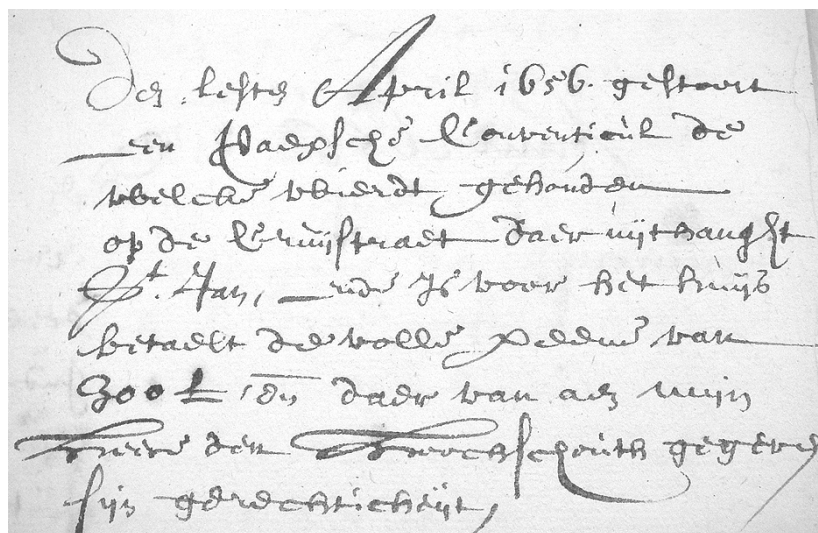 Den lesten April 1656. gestoort
een Paepsche Conventicul de
welcke wierdt gehouden
op de Cruijstraet daer uijthanght
St. Jan, ende Is voor het huijs
betaelt de volle peene van
200 £ en daer van aen mijn
Heere den Hoochschouth gegeven
sijn gerechticheijt,